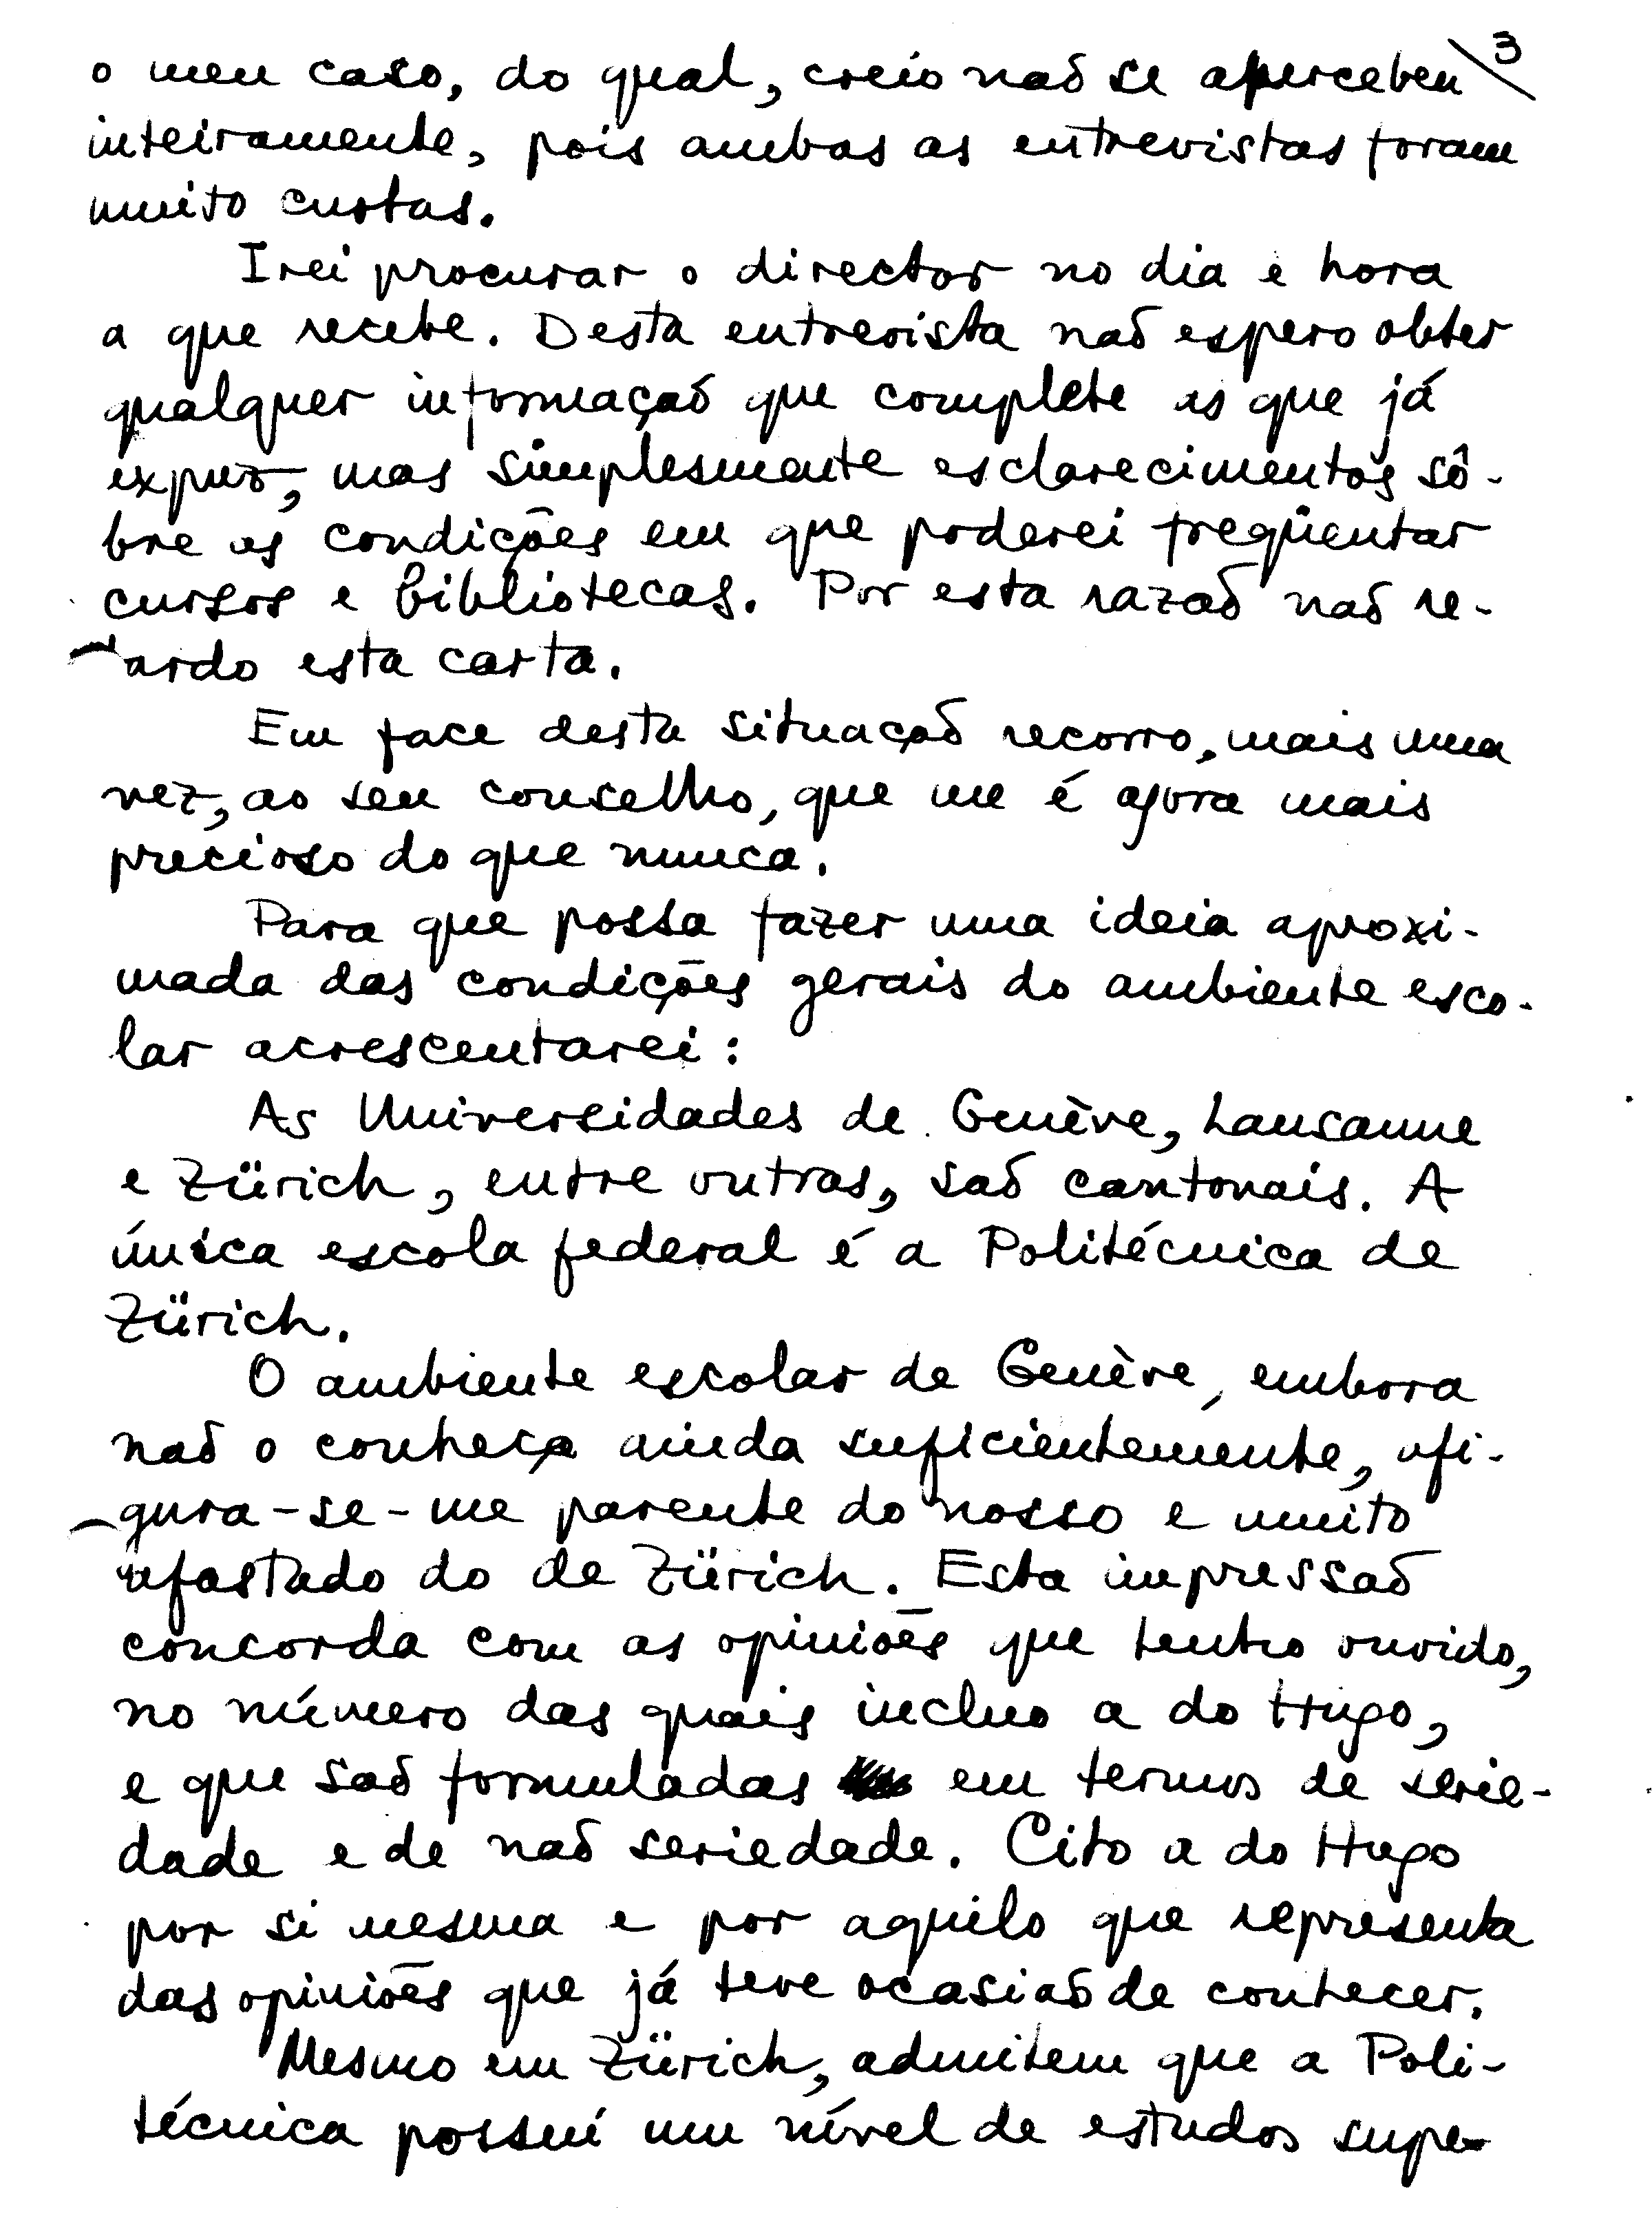 3
o meu caso, do qual, creio não se aperceben
inteiramente, pois ambas as entrevistas foram
muito curtas.
Irei procurar o director no dia e hora
a que recebe. Desta entrevista não espero obter
qualquer informação que complete as que já
expuz, mas simplesmente esclarecimentos sô-
bre as condições em que poderei freqüentar
cursos e bibliotecas. Por esta razão não re-
tardo esta carta.
Em face desta situação recorro, mais uma
vez, ao seu conselho, que me é agora mais
precioso do que nunca.
Para que possa fazer uma ideia aproxi-
mada das condições gerais do ambiente esco-
lar acrescentarei:
As Universidades de Genève, Lausanne
e Zürich, entre outras, são cantonais. A
única escola federal é a Politécnica de
Zürich.
O ambiente escolar de Genève, embora
não o conheça ainda suficientemente, afi-
gura-se-me parente do nosso e muito
afastado do de Zürich. Esta impressão
concorda com as opiniões que tenho ouvido,
no número das quais incluo a do Hugo,
e que são formuladas em termos de serie-
dade e de não seriedade. Cito a do Hugo
por si mesma e por aquilo que representa
das opiniões que já teve ocasião de conhecer.
Mesmo em Zürich, admitem que a Poli-
técnica possuí um nível de estudos supe-